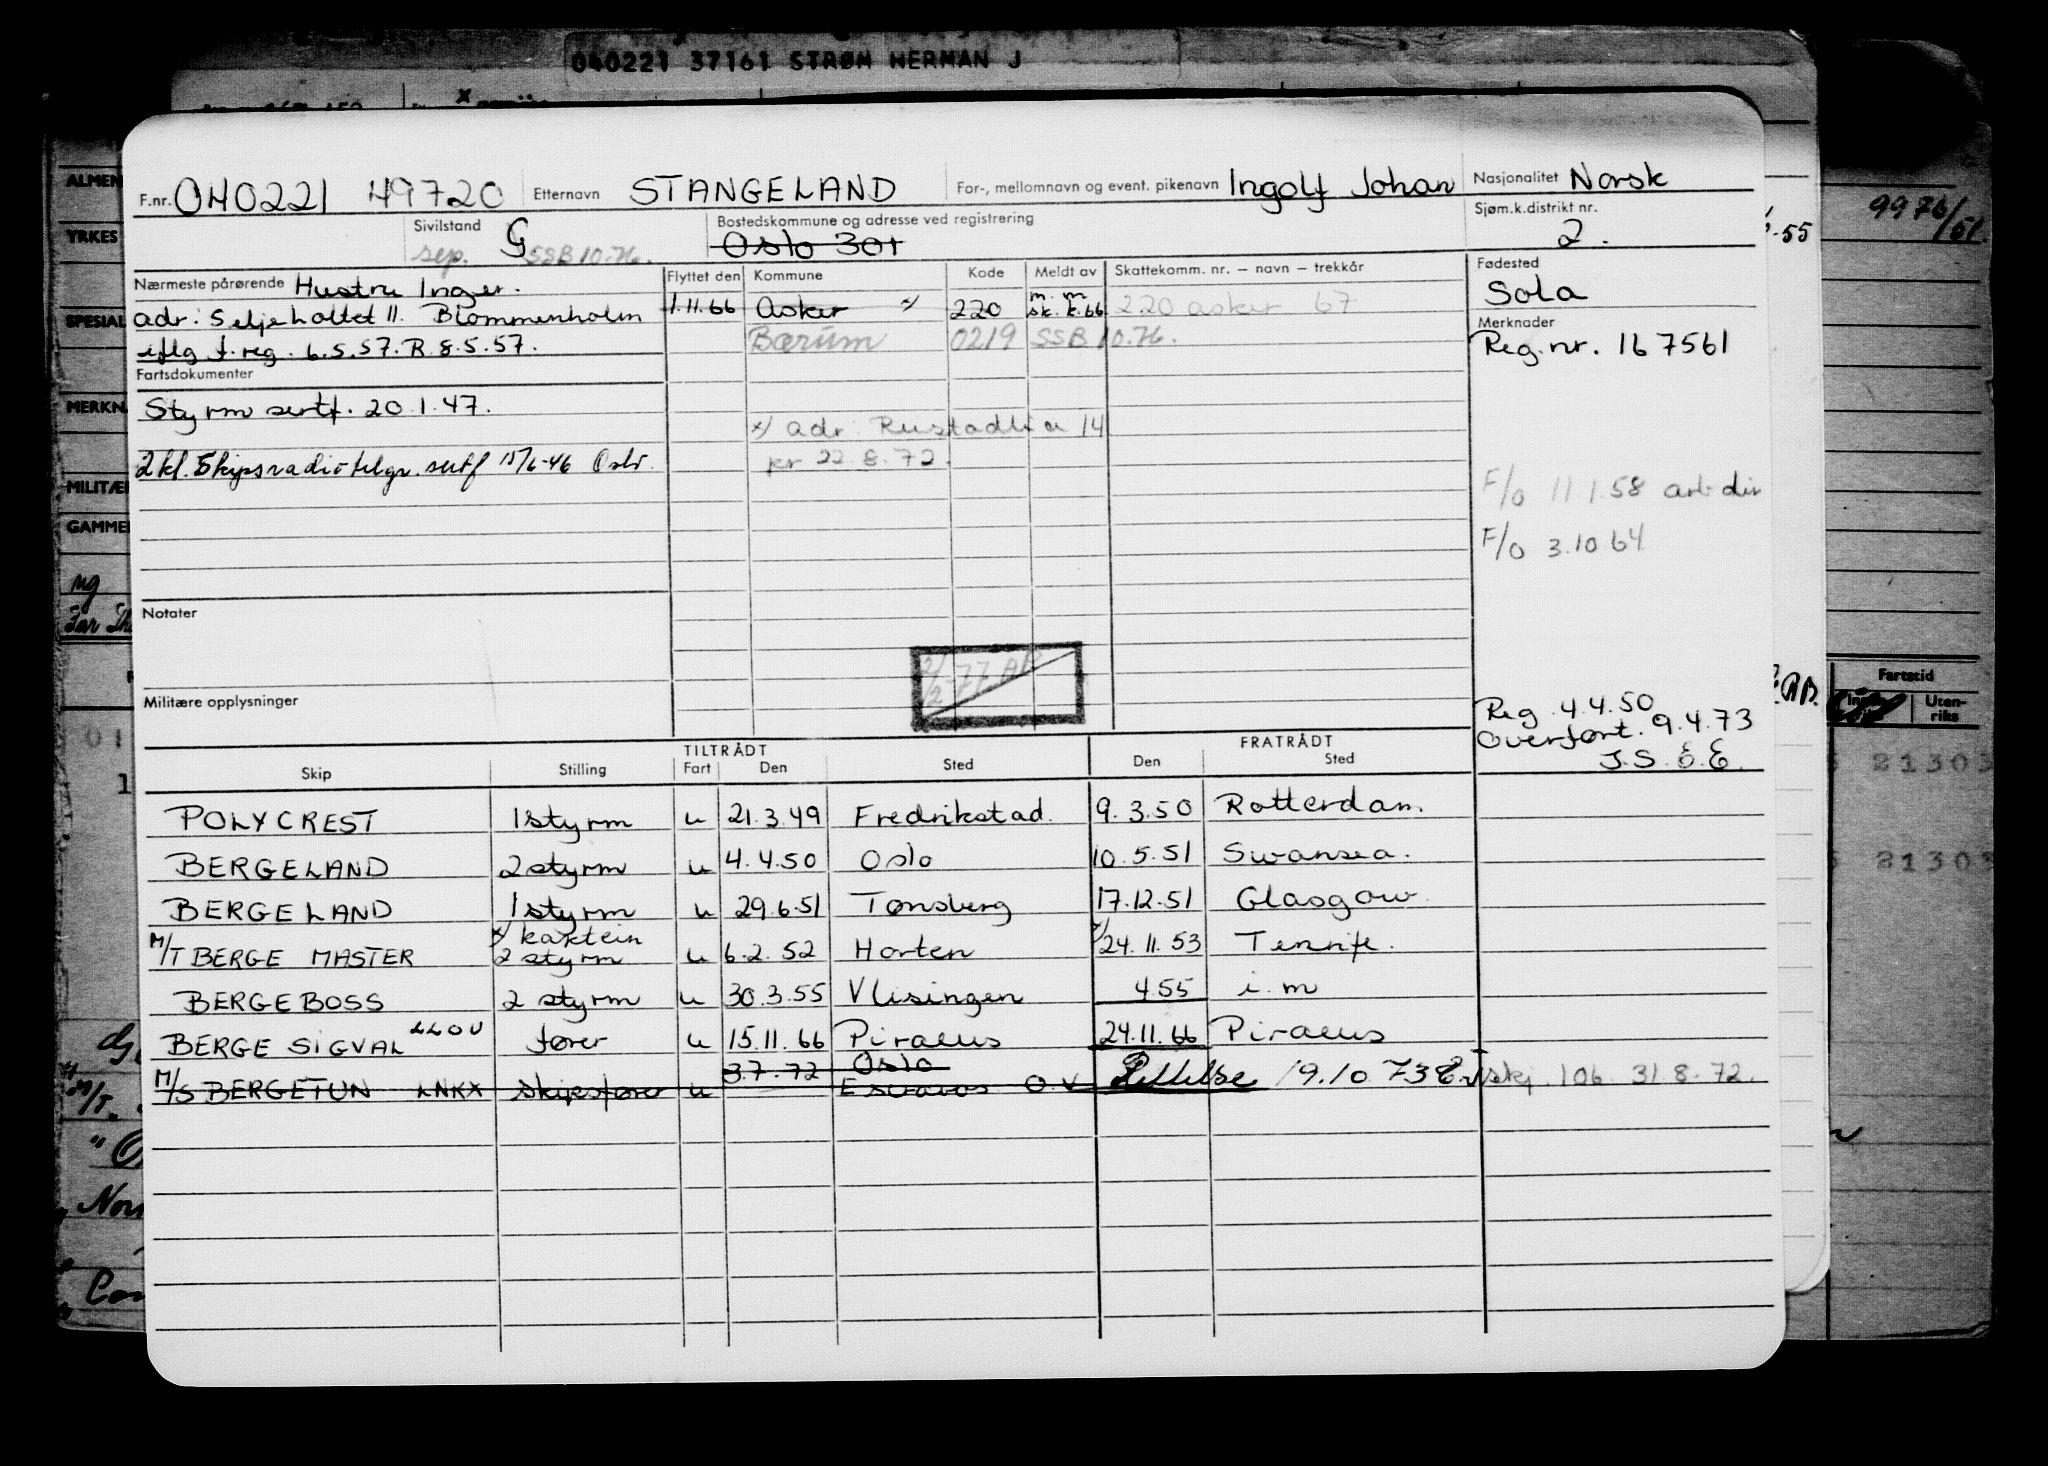 040221 37161 STRØM HERMAN J
F.nr. 040221 49720 Etternavn STANGELAND For-, mellomnavn og event. pikenavn Ingolf Johan Nasjonalitet Norsk
Sivilstand sep. G SSB 10.76. Bostedskommune og adresse ved registrering Oslo 301 Sjøm.k.distrikt nr. 2.
Nærmeste pårørende Hustru Inger. Flyttet den Kommune Kode Meldt av Skattekomm. nr. – navn – trekkår Fødested
adr: Seljeholtet 11. Blommenholm 1.11.66 Asker x) 220 m. m. sk. k. 66 220 asker 67 Sola
iflg f.reg. 6.5.57. R. 8.5.57. Bærum 0219 SSB 10.76. Merknader
Reg.nr. 167561
Fartsdokumenter
Styrm sertf. 20.1.47.
x) adr: Rustadlia 14
2 kl. Skipsradiotelgr. sertf 15/6-46 Oslo. pr 22.8.72.
F/o 11.1.58 arb dir
F/o 3.10 64
Notater
Militære opplysninger
Reg 4.4.50
Overført. 9.4.73
J.S. E.E.
TILTRÅDT FRATRÅDT
Skip Stilling Fart Den Sted Den Sted
POLYCREST 1 styrm u 21.3.49 Fredrikstad. 9.3.50 Rotterdam.
BERGELAND 2 styrm u 4.4.50 Oslo 10.5.51 Swansea.
BERGELAND 1 styrm u 29.6.51 Tønsberg 17.12.51 Glasgow
x) kaktein
M/T BERGE MASTER 2 styrm u 6.2.52 Horten x) 24.11.53 Tenrife.
BERGEBOSS 2 styrm u 30.3.55 Vlisingen 4.55 i.m
BERGE SIGVAL LLOU fører u 15.11.66 Piraeus 24.11.66 Piraeus
M/S BERGETUN LNKX skipsfører u 3.7.72 Oslo Escravos O.V. Slettelse 19.10.73 skj. 106. 31.8.72.
ALMEN
YRKES
SPESIAL
MERKNA
MILITÆR
GAMMEL
9976/51.
-55
Fartstid
Uten-
riks
21303
21303